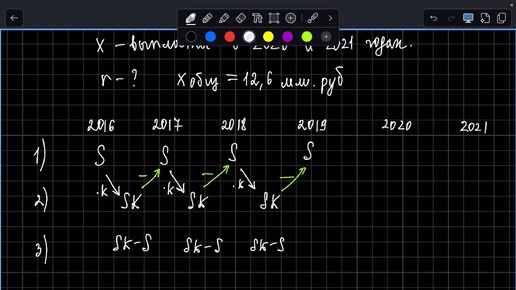 x – выплат в 2020 и 2021 годах.
r – ? x общ = 12,6 млн. руб
2016 2017 2018 2019 2020 2021
1) S S S S
·k – ·k – ·k –
2) Sk Sk Sk
3) Sk – S Sk – S Sk – S